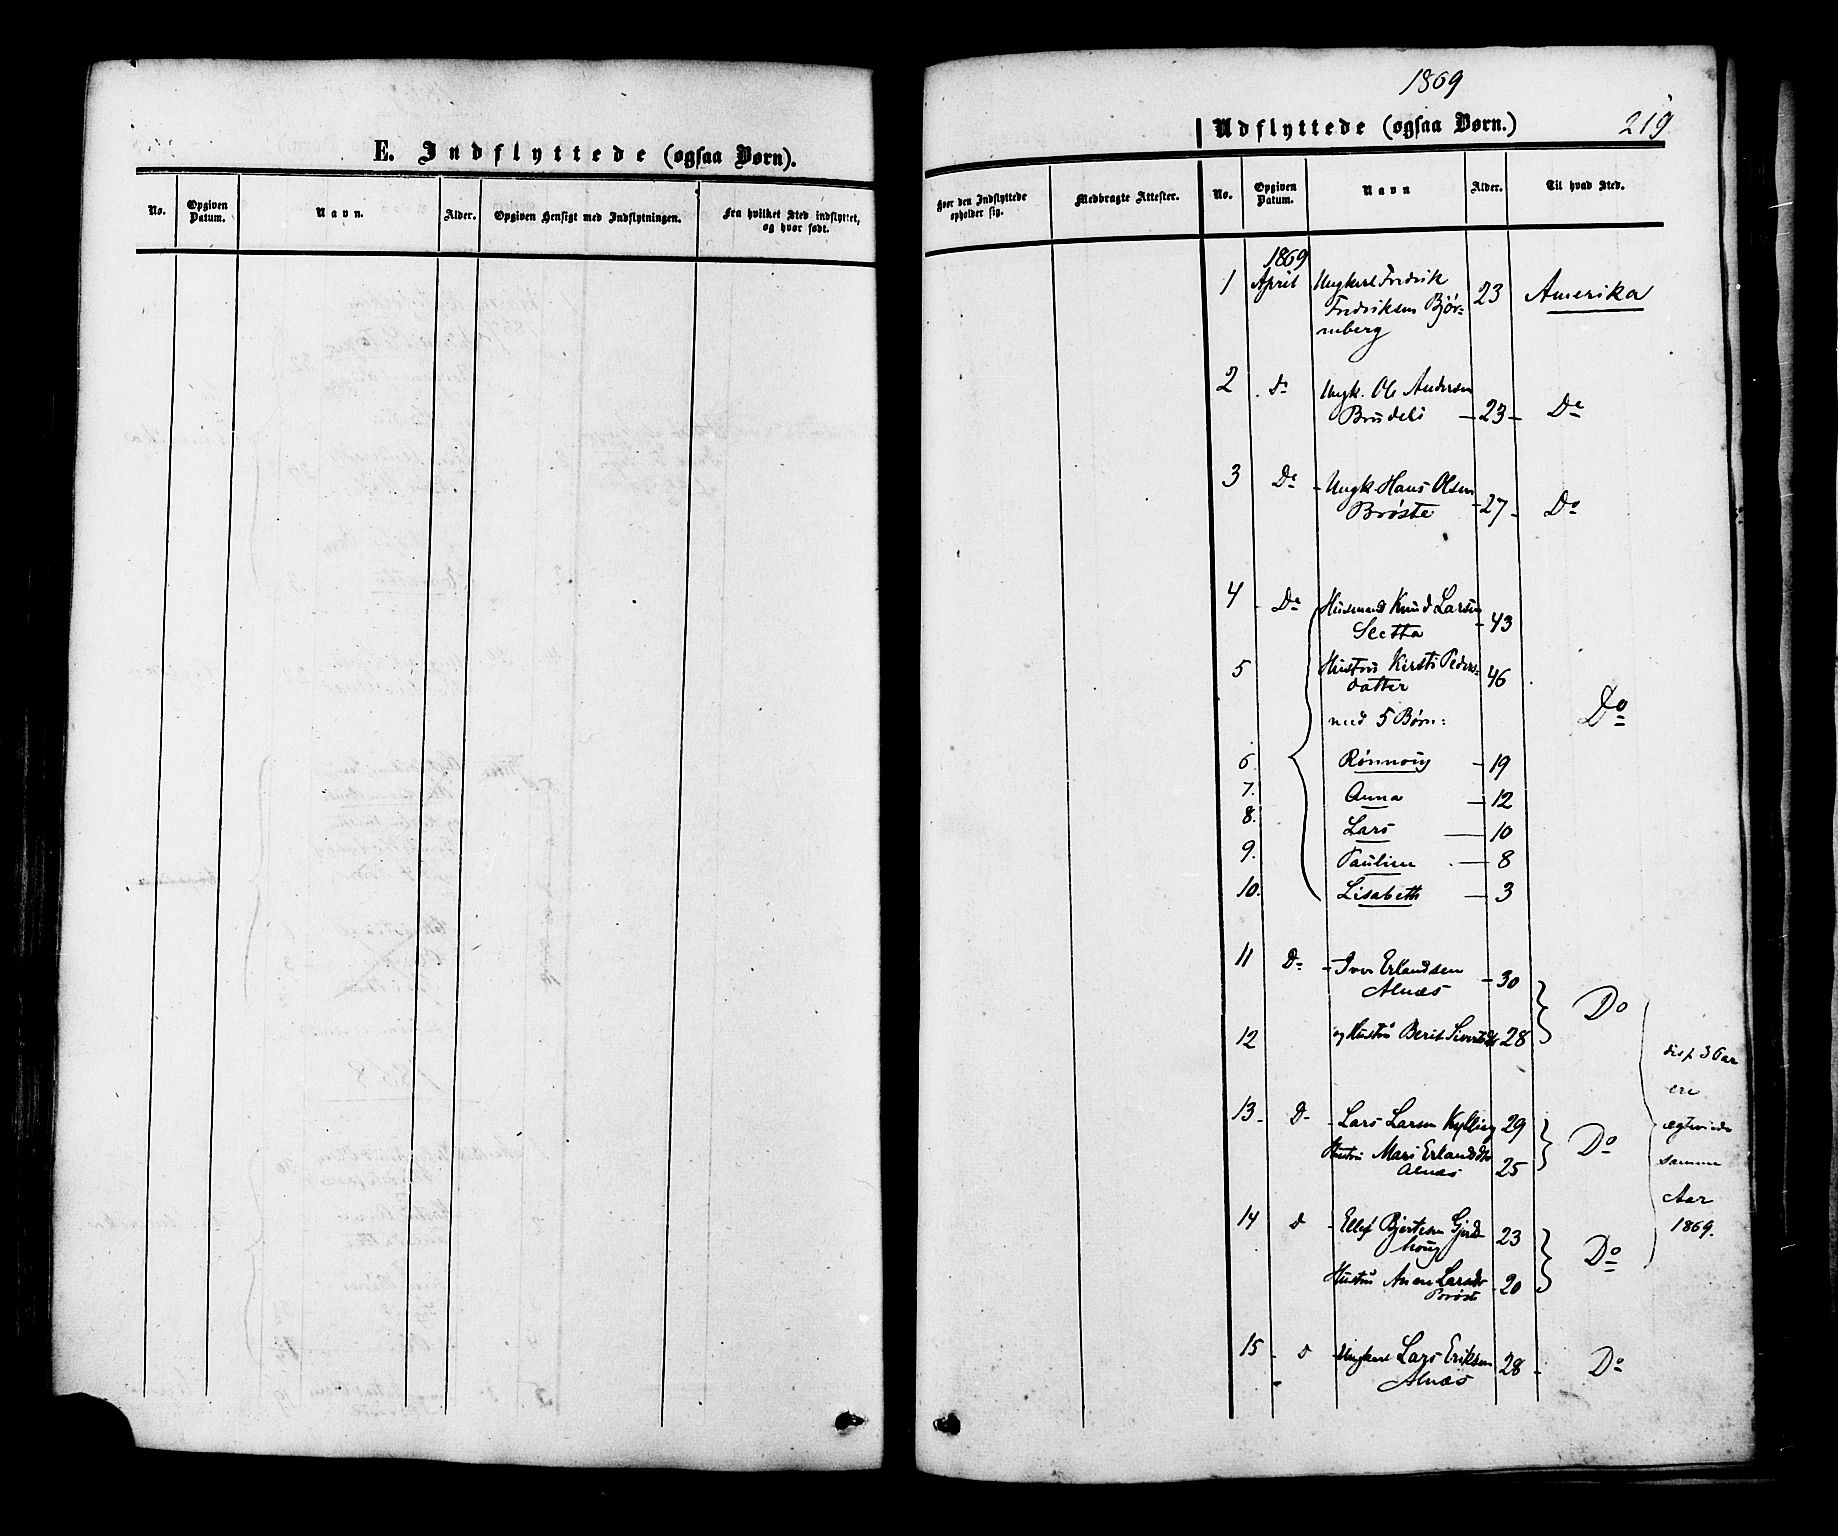 E. Indflyttede (ogsaa Børn).
No.
Opgiven Datum.
Navn.
Alder.
Opgiven Hensigt med Indflytningen.
Fra hvilket Sted indflyttet, og hvor født.
1869
Udflyttede (ogsaa Børn.)
219
Hvor den Indflyttede opholder sig.
Medbragte Attester.
No.
Opgiven Datum.
Navn
Alder.
Til hvad Sted.
1869
1 April Ungkarl Fredrik
Fredriksen Bjør-
neberg 23 Amerika
2 do Ungk. Ole Andersen
Brudeli 23 Do
3 Do Ungk. Hans Olsen
Brøste 27 Do
4 Do Husmand Knud Larsen
Sletta 43
5 Hustru Kirsti Peders-
datter 46
med 5 Børn: Do
6. Rønnoug 19
7. Anna 12
8. Lars 10
9. Pauline 8
10. Lisabeth 3
11 Do Iver Erlandsen
Alnæs 30 Do
12 og Hustru Berit Sivertsdt 28
13 D Lars Larsen Kylling 29 Do
Hustru Mari Erlandsdtr
Alnæs 25
14 d Ellef Bjertesen Gjerd
houg 23 Do
Hustru Anne Larsdr
Brøste 20
disse 3 Par
ere
ægteviede
samme
Aar
1869.
15 d Ungkarl Lars Eriksen
Alnæs 28 Do